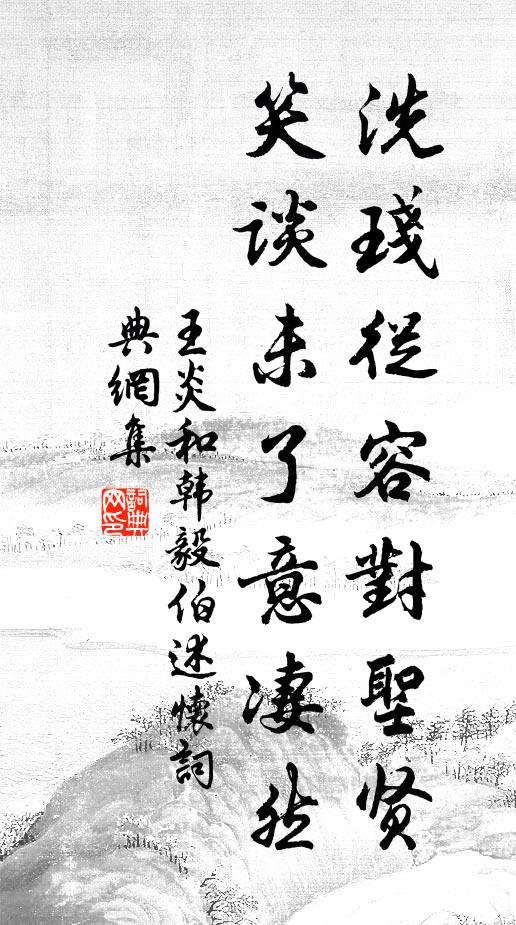 洗琖從容對聖贤
笑談未了意凄然
王炎和韩毅伯述懷詞
典網集
詞典網印